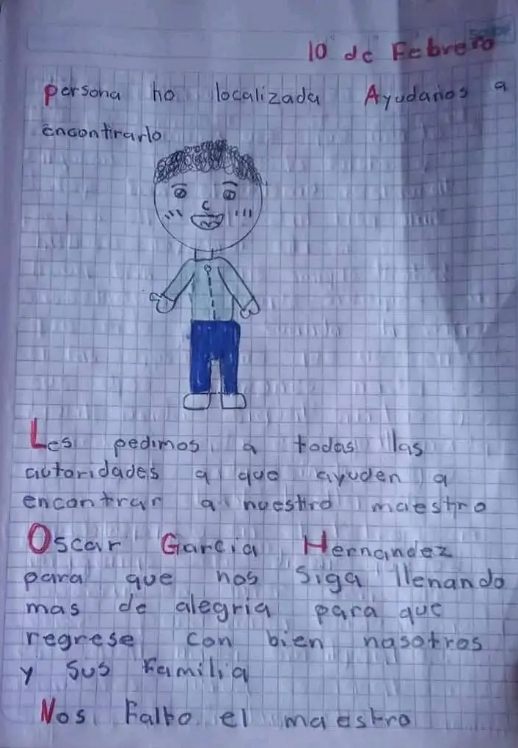 10 de Febrero
persona no localizada Ayudanos a
encontrarlo
Les pedimos a todas las
autoridades a que ayuden a
encontrar a nuestro maestro
Oscar Garcia Hernandez
para que nos siga llenando
mas de alegria para que
regrese con bien nasotros
y sus familia
Nos Falto el maestro